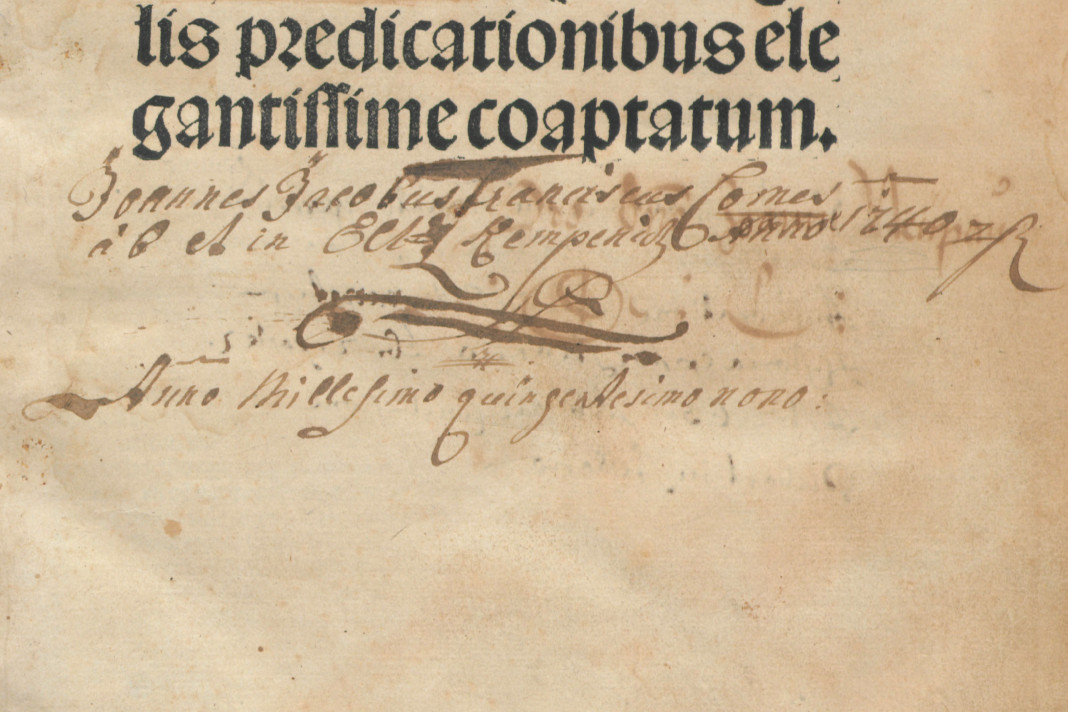 lis predicationibus ele
gantissime coaptatum.
Joannes Jacobus Franciscus Comes
ab et in Eltz Kempenich Anno 1740
Anno Millesimo quingentesimo nono: